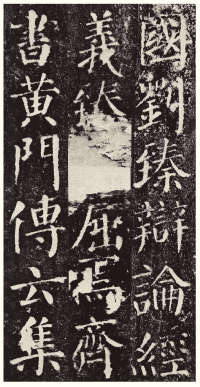 國劉臻辯論經
義臻屈焉齊
書黃門傳云集